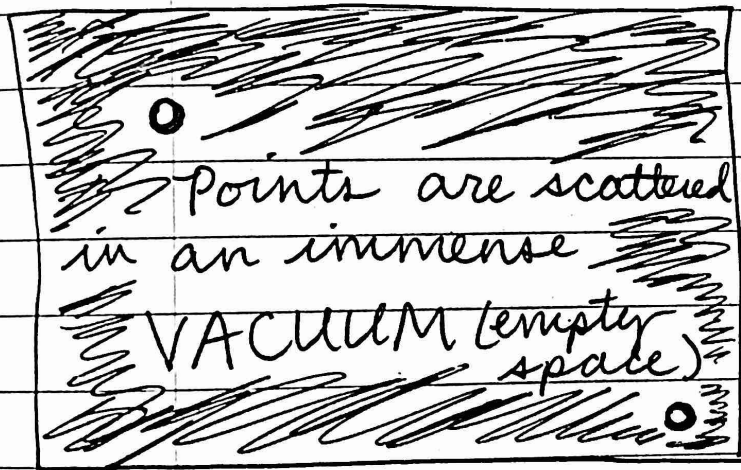 Points are scattered
in an immense
VACUUM (empty
space)